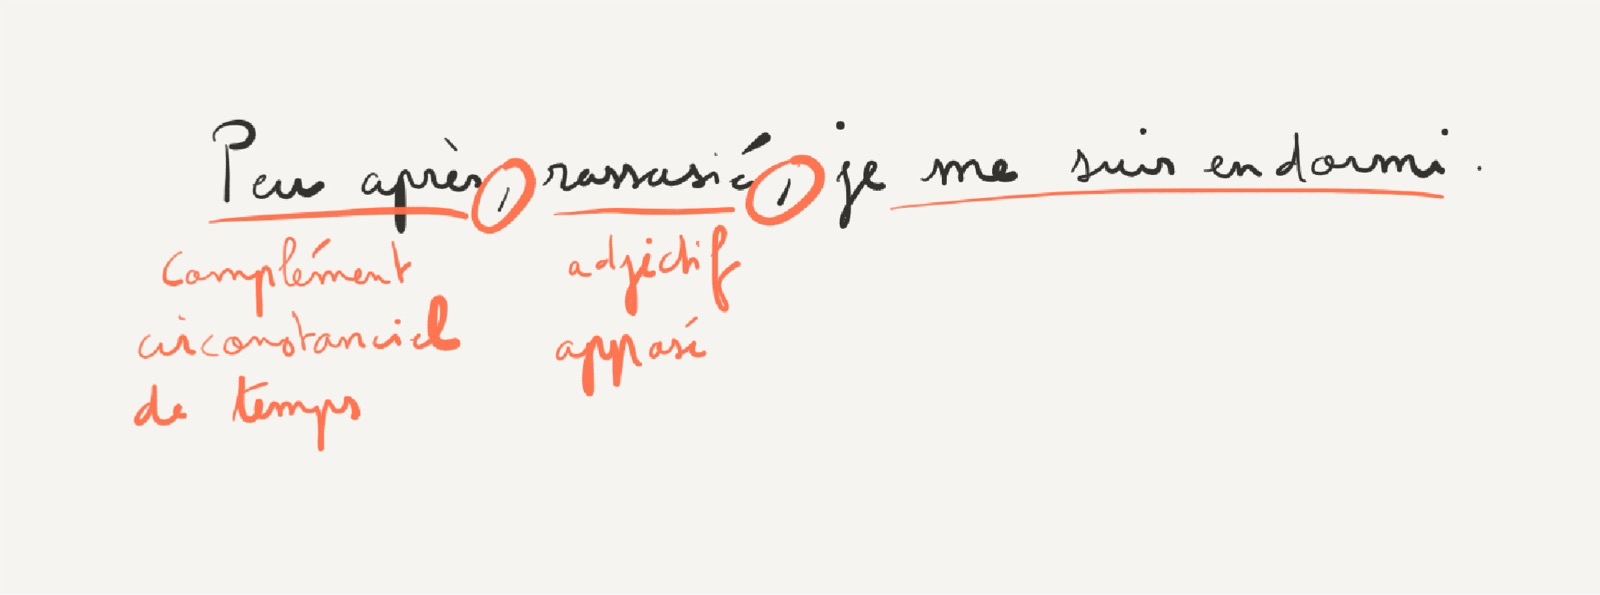 Peu après, rassasié, je me suis endormi.
Complément
circonstanciel
de temps
adjectif
apposé